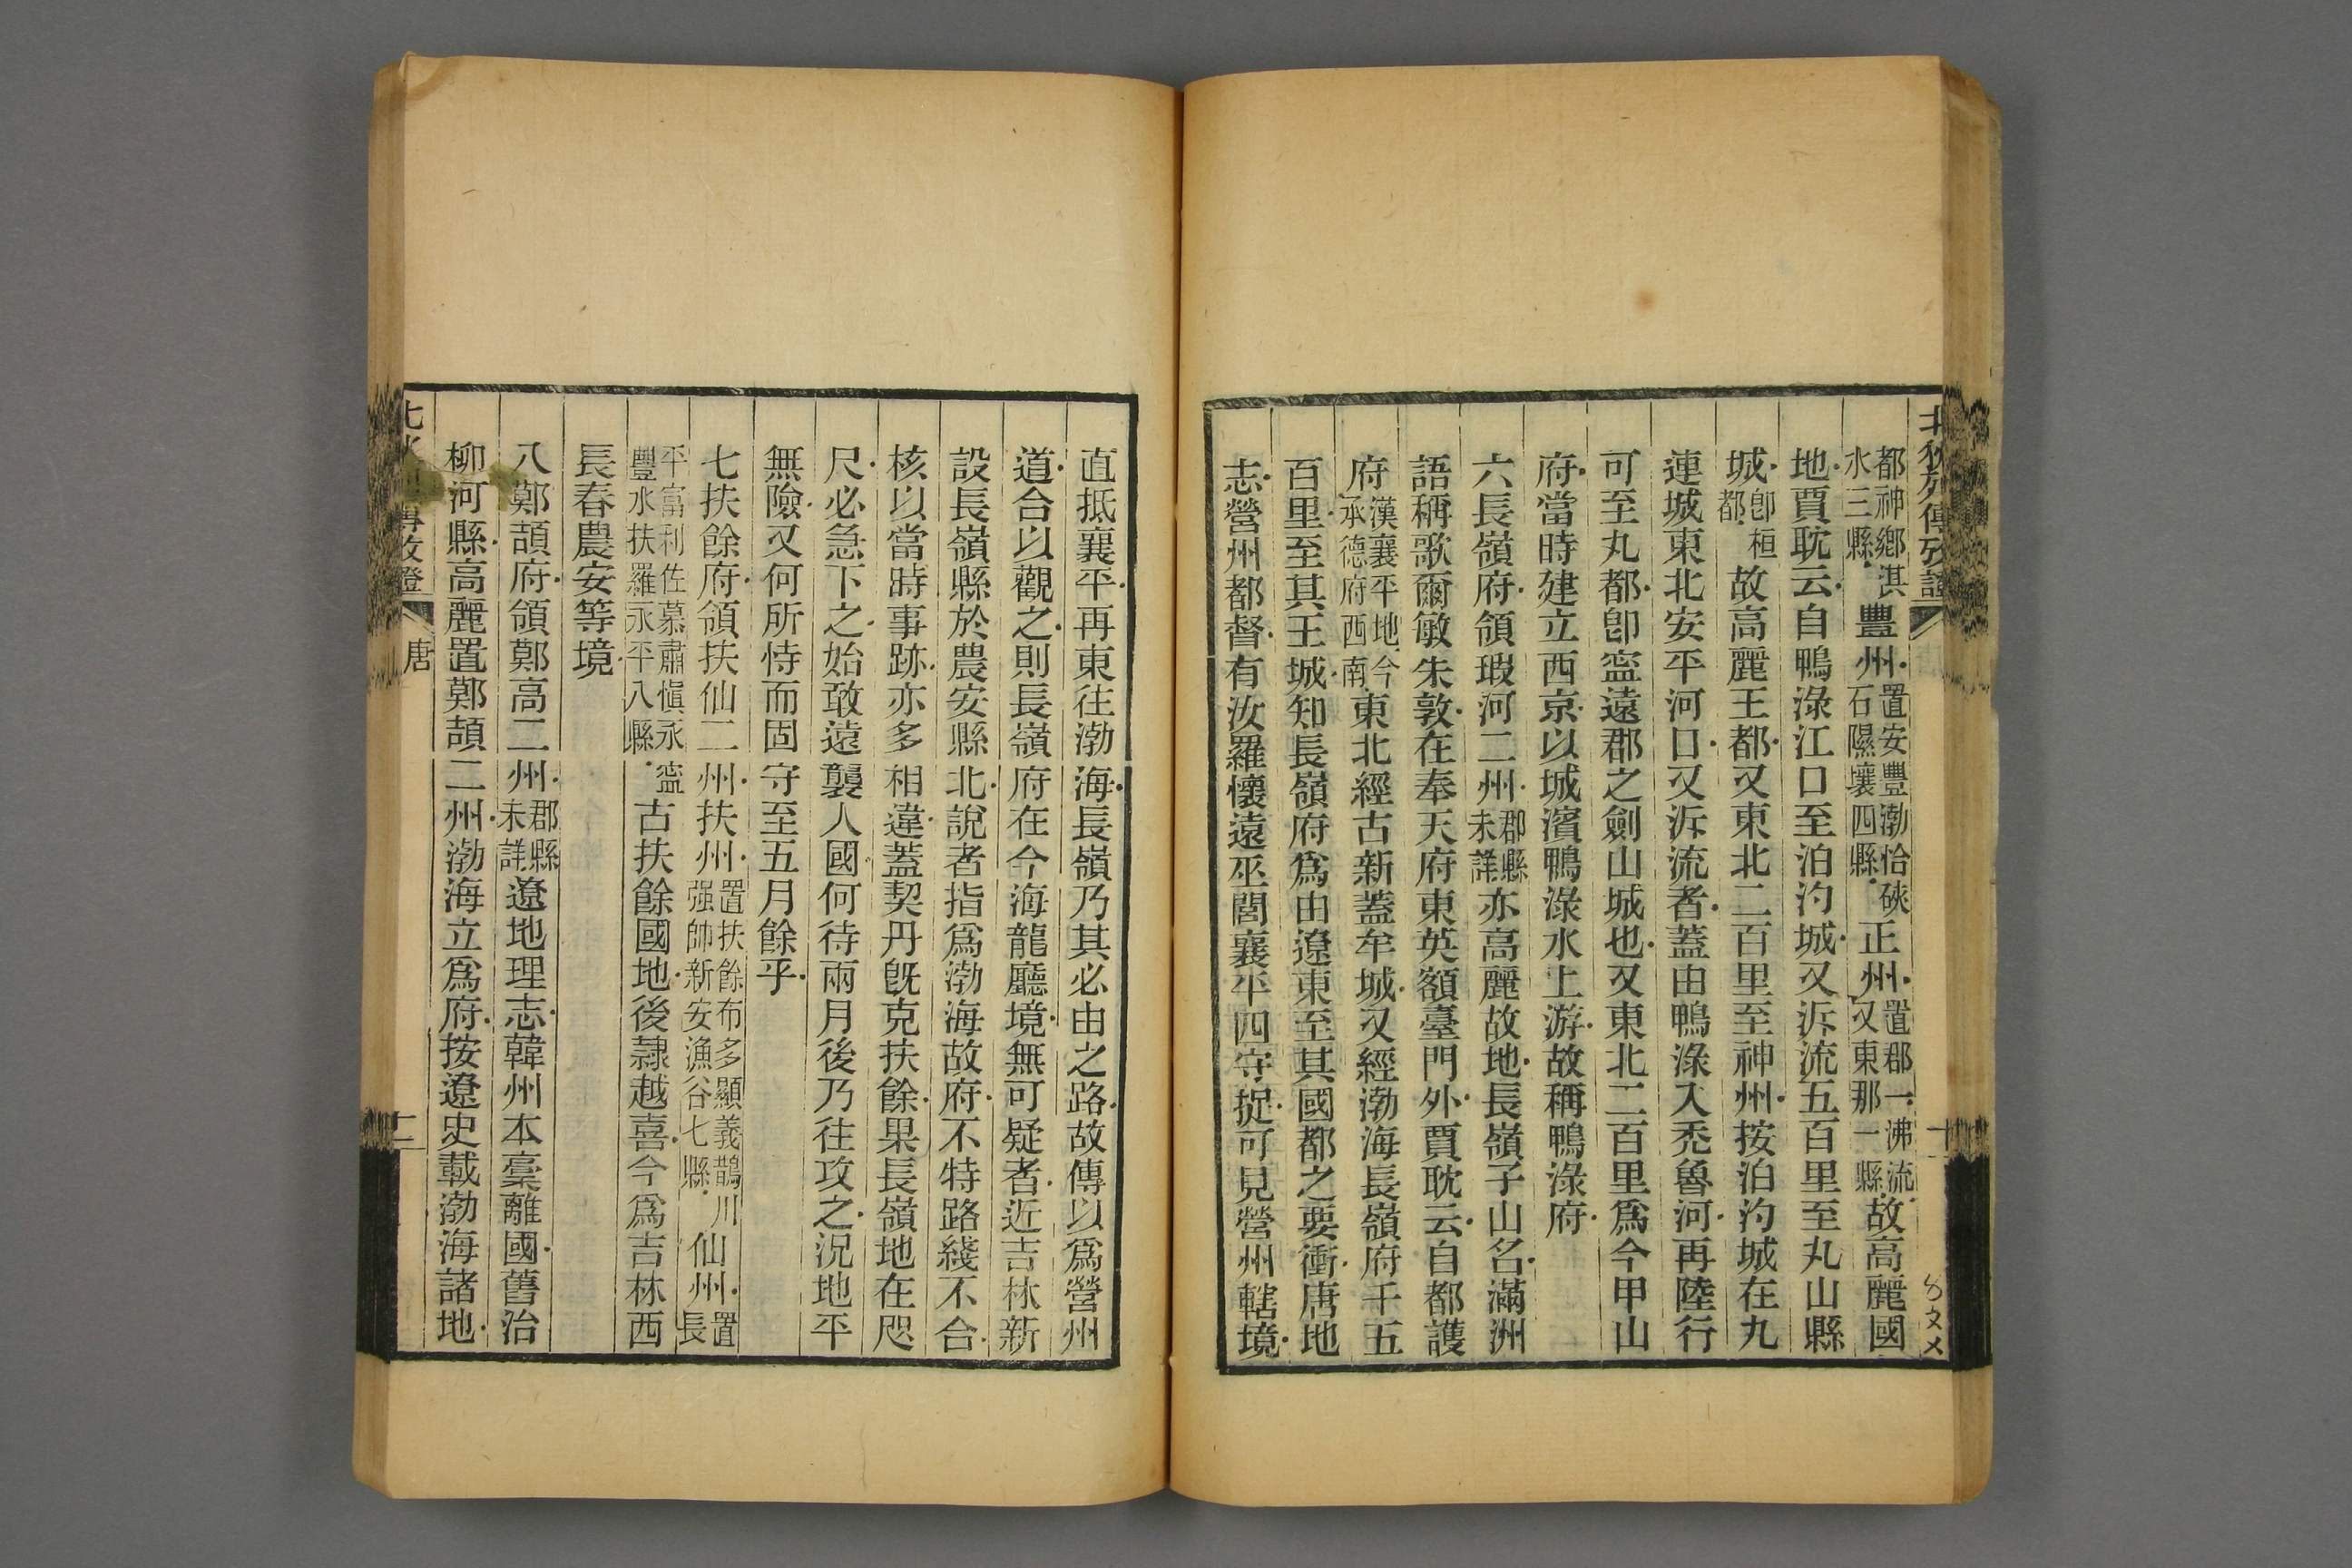 北狄列傳攷證
都神鄉淇水三縣豐州置安豐渤恰硤石隰壤四縣正州置郡一沸流又東那一縣故高麗國
地賈耽云自鴨淥江口至泊汋城又泝流五百里至丸山縣
城卽桓都故高麗王都又東北二百里至神州按泊汋城在九
連城東北安平河口又泝流者蓋由鴨淥入禿魯河再陸行
可至丸都卽寍遠郡之劍山城也又東北二百里爲今甲山
府當時建立西京以城濱鴨淥水上游故稱鴨淥府
六長嶺府領瑕河二州郡縣未詳亦高麗故地長嶺子山名滿洲
語稱歌爾敏朱敦在奉天府東英額臺門外賈耽云自都護
府漢襄平地今承德府西南東北經古新蓋牟城又經渤海長嶺府千五
百里至其王城知長嶺府爲由遼東至其國都之要衝唐地
志營州都督有汝羅懷遠巫閭襄平四守捉可見營州轄境
直抵襄平再東往渤海長嶺乃其必由之路故傳以爲營州
道合以觀之則長嶺府在今海龍廳境無可疑者近吉林新
設長嶺縣於農安縣北說者指爲渤海故府不特路綫不合
核以當時事跡亦多相違蓋契丹旣克扶餘果長嶺地在咫
尺必急下之始敢遠襲人國何待兩月後乃往攻之況地平
無險又何所恃而固守至五月餘乎
七扶餘府領扶仙二州扶州置扶餘布多顯義鵲川强師新安漁谷七縣仙州置長
平富利佐慕肅愼永寍豐水扶羅永平八縣古扶餘國地後隷越喜今爲吉林西
長春農安等境
八鄭頡府領鄭高二州郡縣未詳遼地理志韓州本稾離國舊治
柳河縣高麗置鄭頡二州渤海立爲府按遼史載渤海諸地
唐